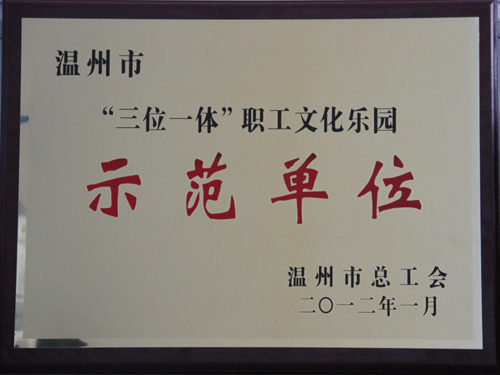 温州市
“三位一体”职工文化乐园
示范单位
温州市总工会
二〇一二年一月